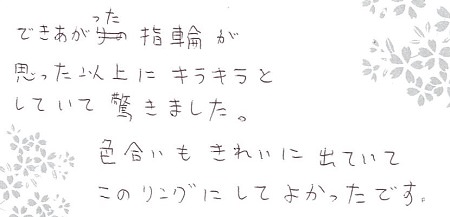 できあがった指輪が
思った以上にキラキラと
していて驚きました。
色合いもきれいに出ていて
このリングにしてよかったです。